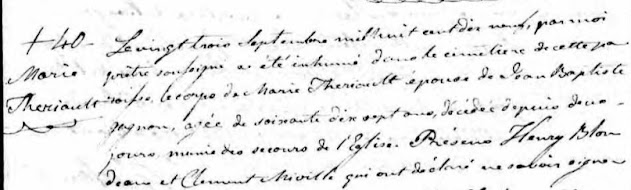 + 40
Marie
Theriault
Le vingt trois Septembre mil huit cent dix neuf, par moi
prêtre soussigné a été inhumé dans le cimetière de cette pa
roisse, le corps de Marie Theriault epouse de Jean Baptiste
gagnon, agée de soixante dix sept ans, décédée depuis deux
jours, munie des secours de l'Eglise. Présens Henry Blon
deau et Clement Miville qui ont declaré ne savoir signer